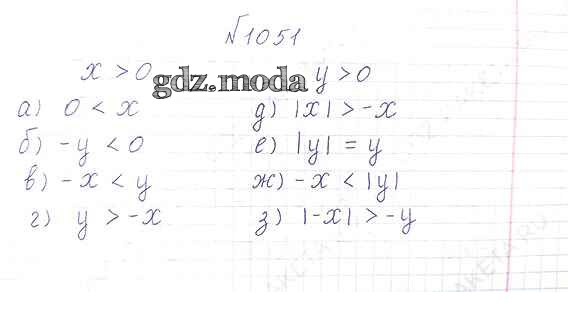 №1051
x > 0 gdz.moda y > 0
а) 0 < x д) |x| > -x
б) -y < 0 е) |y| = y
в) -x < y ж) -x < |y|
г) y > -x з) |-x| > -y